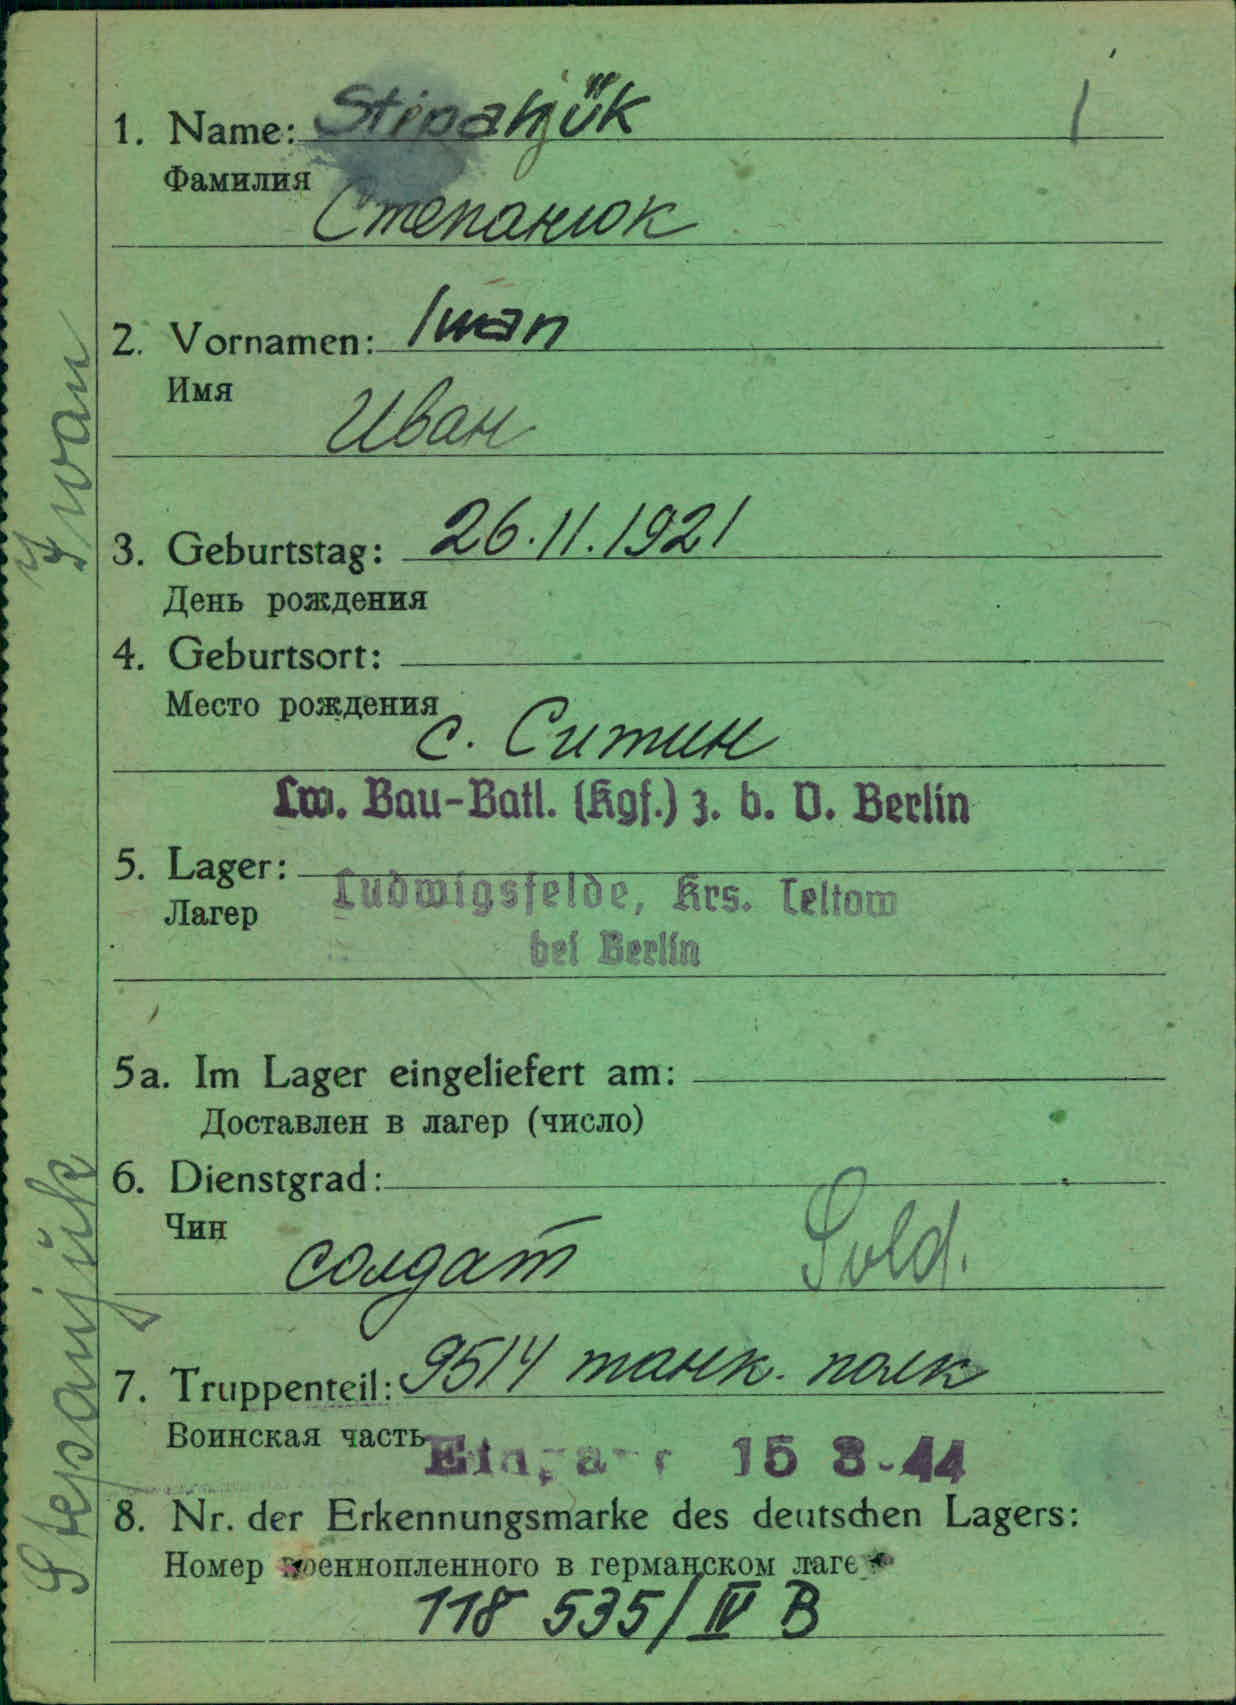 1. Name: Stipanjŭk
Фамилия
Степанюк
2. Vornamen: Iwan
Имя
Иван
3. Geburtstag: 26.11.1921
День рождения
4. Geburtsort:
Место рождения
с. Ситин
Lw. Bau-Batl. (Kgf.) z. b. V. Berlin
5. Lager:
Ludwigsfelde, Krs. Teltow
Лагер
bei Berlin
5a. Im Lager eingeliefert am:
Доставлен в лагер (число)
6. Dienstgrad:
Чин
солдат Sold.
7. Truppenteil: 9514 танк. полк
Воинская часть
Eingang 15 8.44
8. Nr. der Erkennungsmarke des deutschen Lagers:
Номер военнопленного в германском лаге
118 535/IV B
Stepanjŭk Iwan